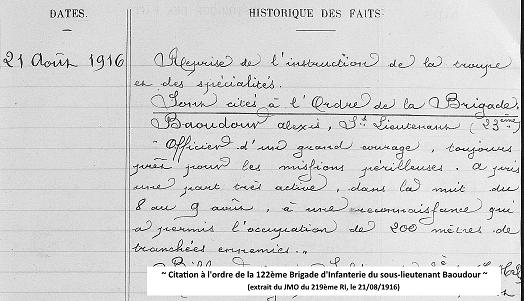 DATES.
HISTORIQUE DES FAITS
21 Août 1916
Reprise de l'instruction de la troupe
et des spécialités.
Sont cités à l'Ordre de la Brigade.
Baoudour Alexis, St Lieutenant (23ème)
"Officier d'un grand courage, toujours
prêt pour les missions périlleuses. A pris
une part très active, dans la nuit du
8 au 9 août, à une reconnaissance qui
a permis l'occupation de 200 mètres de
tranchées ennemies."
~ Citation à l'ordre de la 122ème Brigade d'Infanterie du sous-lieutenant Baoudour ~
(extrait du JMO du 219ème RI, le 21/08/1916)